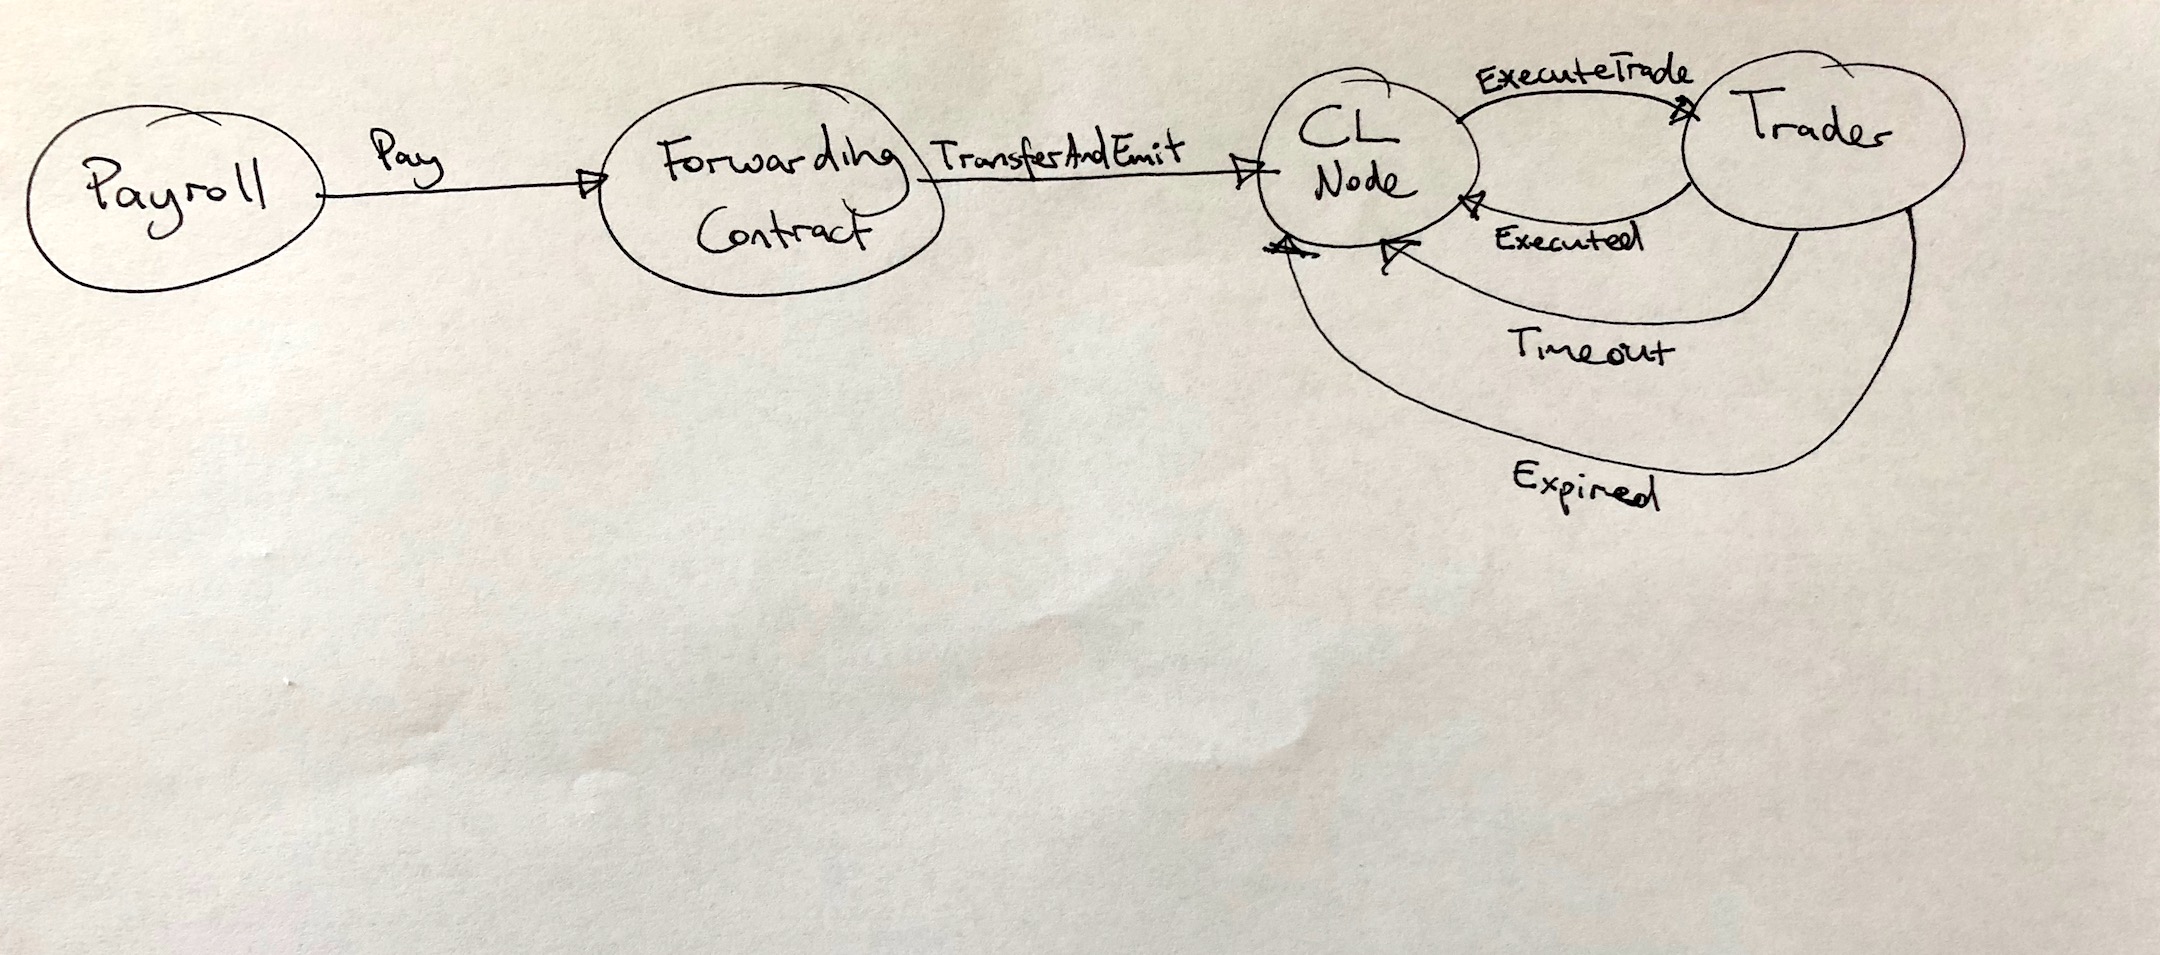 Payroll
Pay
Forwarding
Contract
TransferAndEmit
CL
Node
ExecuteTrade
Trader
Executed
Timeout
Expired